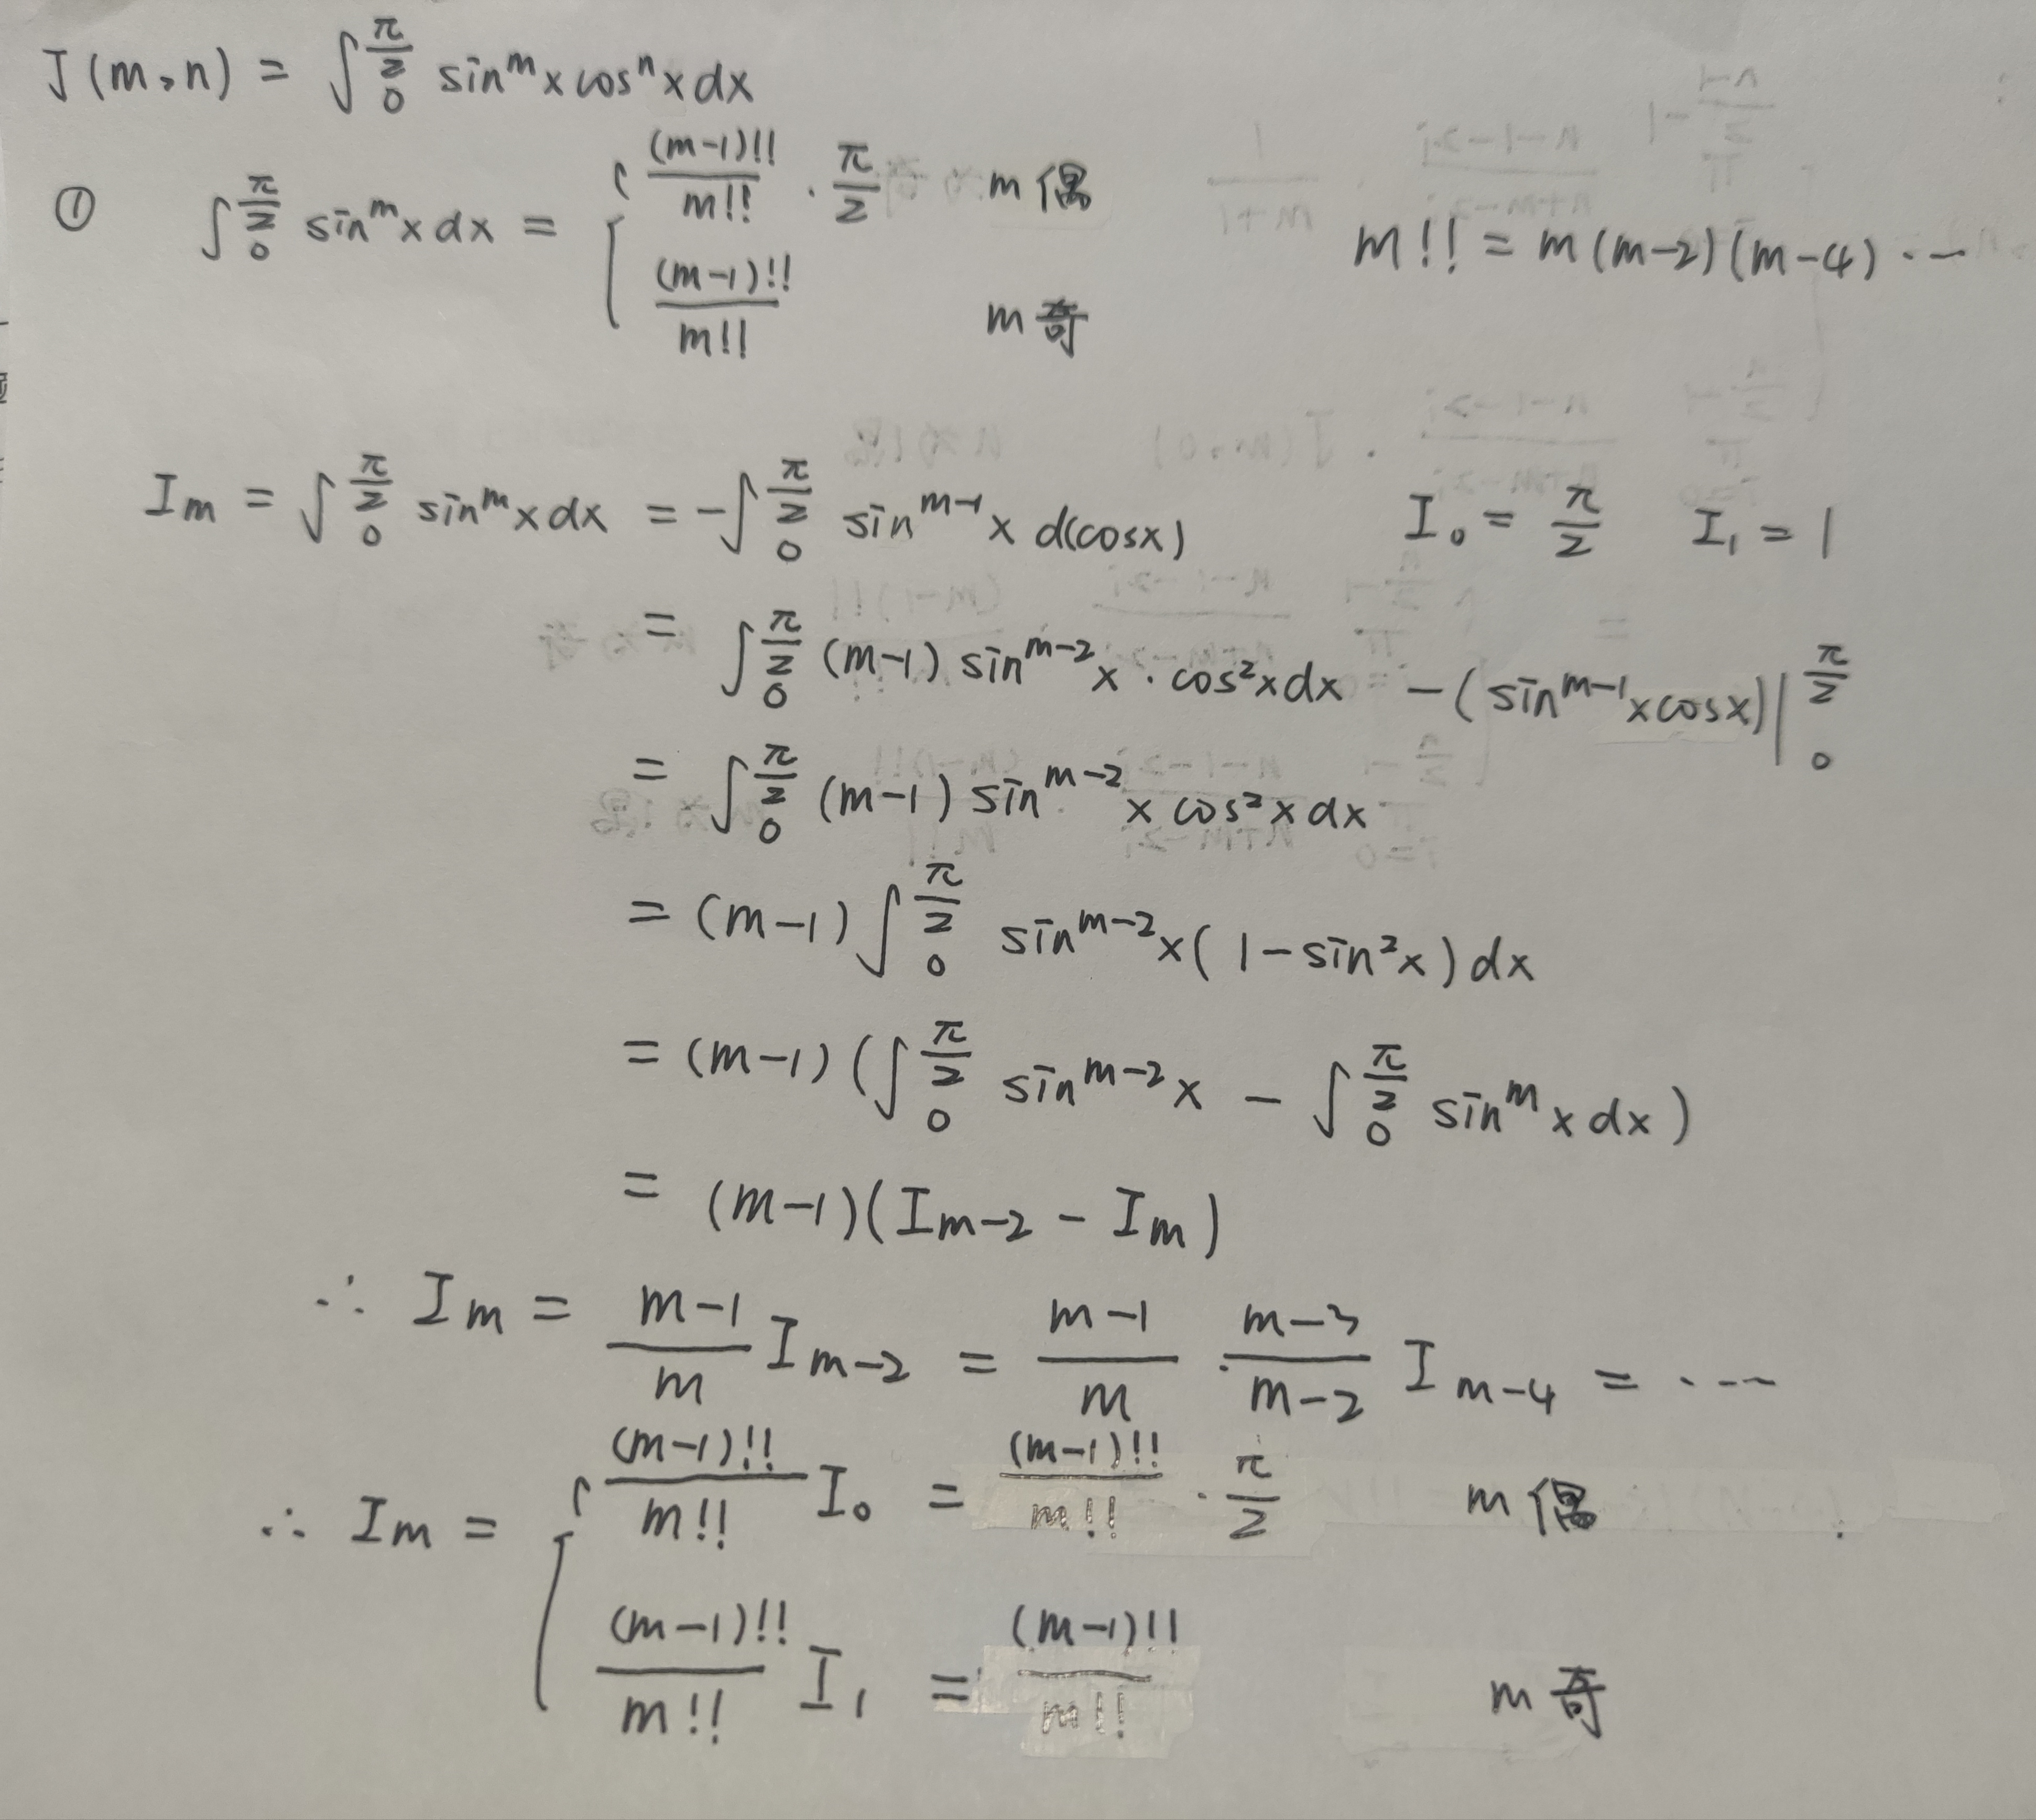 J(m,n) = ∫₀^{π/2} sin^m x cos^n x dx
① ∫₀^{π/2} sin^m x dx = { (m-1)!!/m!! · π/2 m偶
(m-1)!!/m!! m奇
m!! = m(m-2)(m-4)⋯
I_m = ∫₀^{π/2} sin^m x dx = -∫₀^{π/2} sin^{m-1} x d(cosx) I₀ = π/2 I₁ = 1
= ∫₀^{π/2} (m-1) sin^{m-2} x · cos²x dx - (sin^{m-1} x cosx)|₀^{π/2}
= ∫₀^{π/2} (m-1) sin^{m-2} x cos²x dx
= (m-1) ∫₀^{π/2} sin^{m-2} x (1-sin²x) dx
= (m-1) (∫₀^{π/2} sin^{m-2} x - ∫₀^{π/2} sin^m x dx)
= (m-1)(I_{m-2} - I_m)
∴ I_m = (m-1)/m I_{m-2} = (m-1)/m · (m-3)/(m-2) I_{m-4} = ⋯
∴ I_m = { (m-1)!!/m!! I₀ = (m-1)!!/m!! · π/2 m偶
(m-1)!!/m!! I₁ = (m-1)!!/m!! m奇